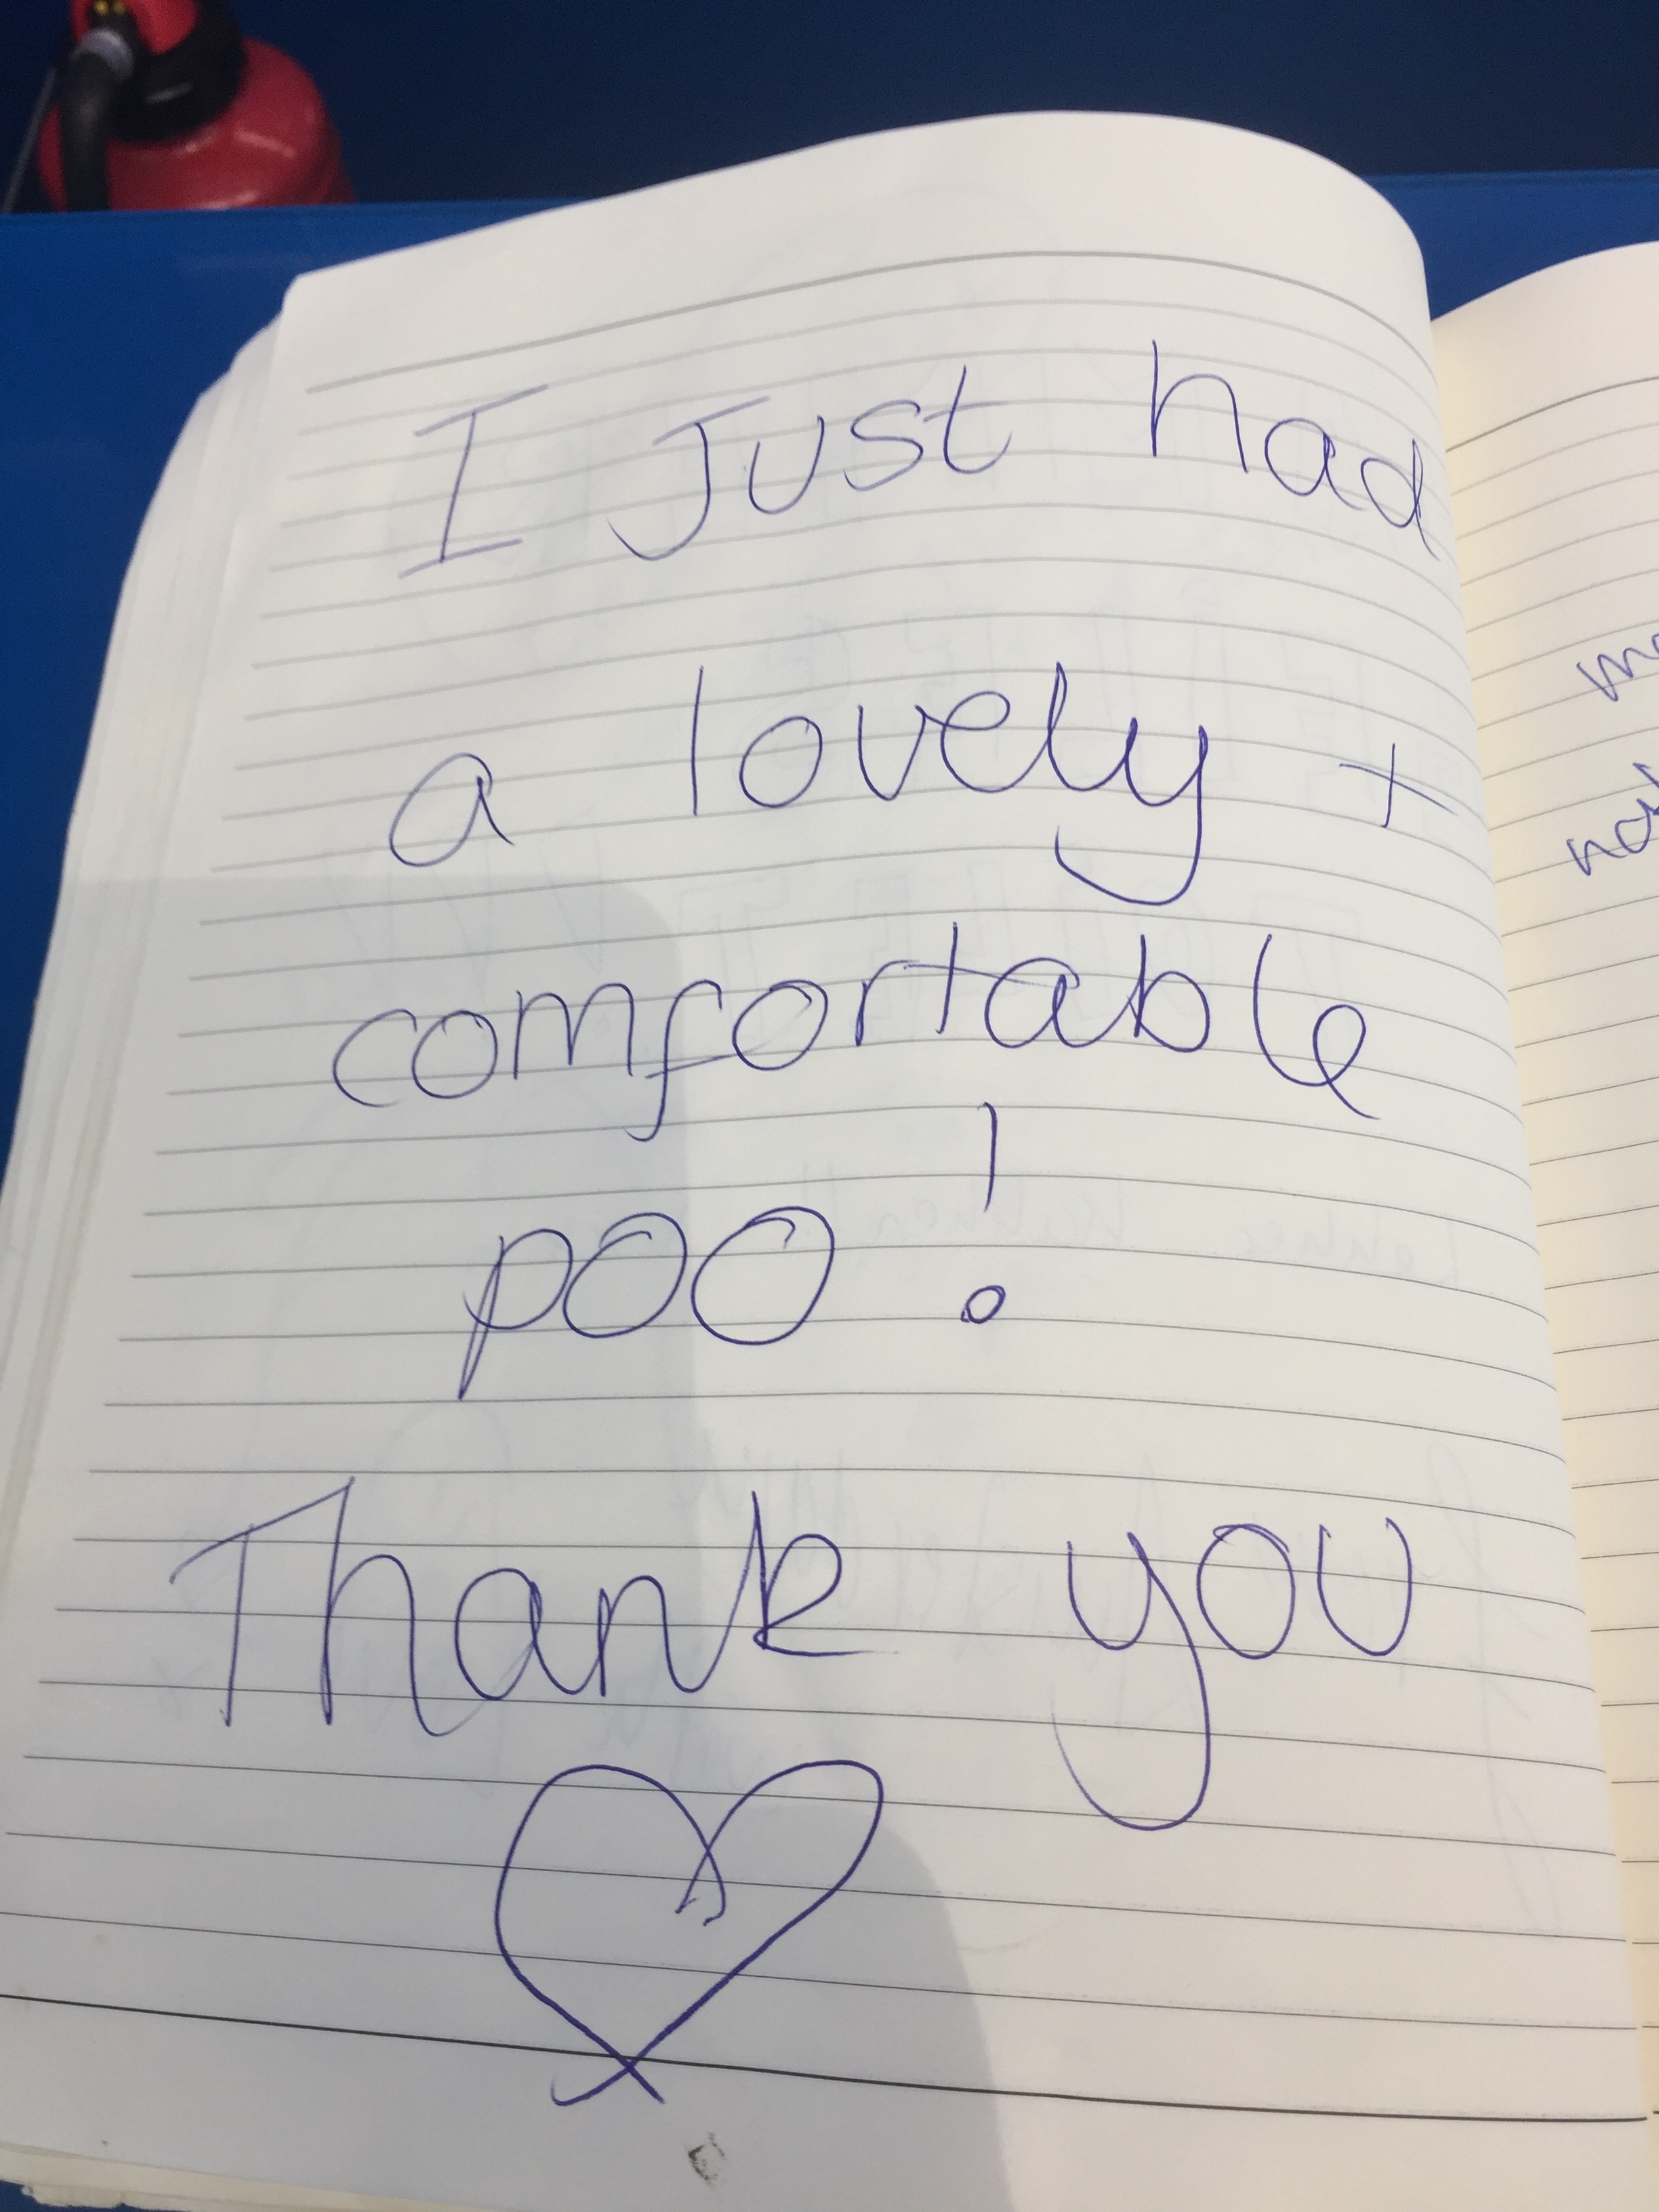 I Just had
a lovely +
comfortable
poo!
Thank you